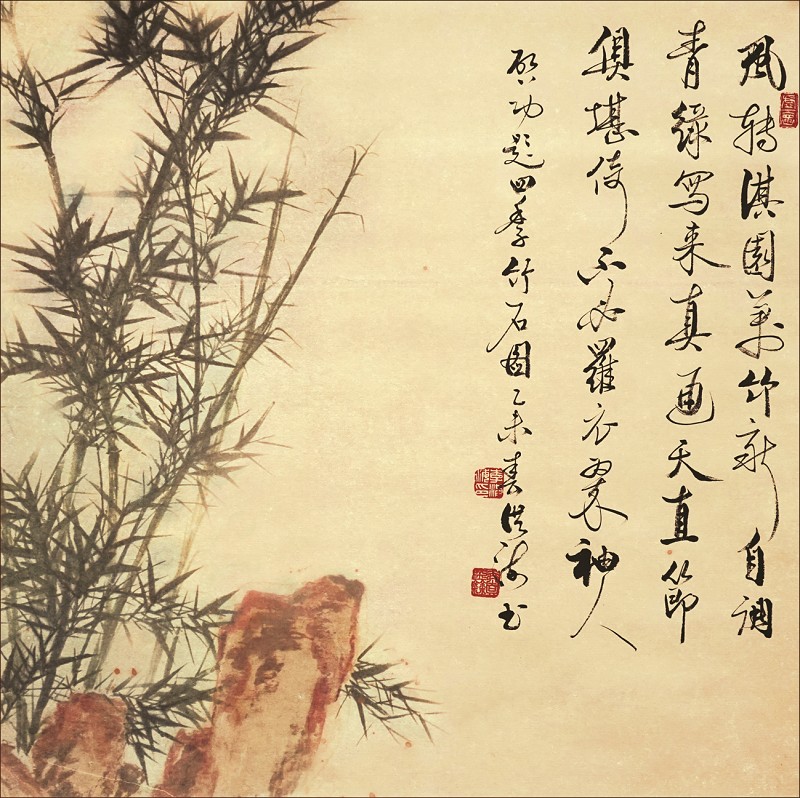 風轉淇園萬竹新自調
青綠寫来真通天直節
俱堪倚不必羅衣翠袖人
啓功題四季竹石圖乙未春洪海书